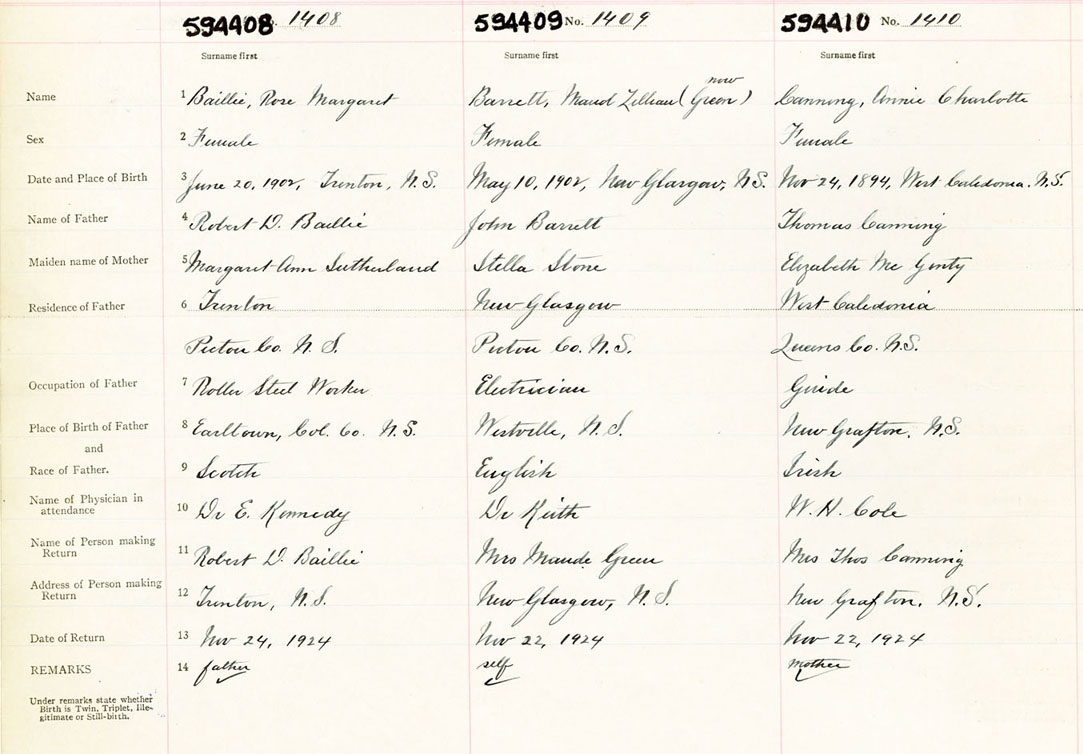 594408 No. 1408 594409 No. 1409 594410 No. 1410
Surname first Surname first Surname first
now
Name 1 Baillie, Rose Margaret Barrett, Maud Lillian (Green) Canning, Annie Charlotte
Sex 2 Female Female Female
Date and Place of Birth 3 June 20, 1902, Trenton, N.S. May 10, 1902, New Glasgow, N.S. Nov 24, 1894, West Caledonia, N.S.
Name of Father 4 Robert D. Baillie John Barrett Thomas Canning
Maiden name of Mother 5 Margaret Ann Sutherland Stella Stone Elizabeth Mc Ginty
Residence of Father 6 Trenton New Glasgow West Caledonia
Pictou Co. N.S. Pictou Co. N.S. Queens Co. N.S.
Occupation of Father 7 Roller Steel Worker Electrician Guide
Place of Birth of Father 8 Earltown, Col. Co. N.S. Westville, N.S. New Grafton, N.S.
and
Race of Father. 9 Scotch English Irish
Name of Physician in
attendance 10 Dr E. Kennedy Dr Keith W. H. Cole
Name of Person making
Return 11 Robert D. Baillie Mrs Maude Green Mrs Thos Canning
Address of Person making
Return 12 Trenton, N.S. New Glasgow, N.S. New Grafton, N.S.
Date of Return 13 Nov 24, 1924 Nov 22, 1924 Nov 22, 1924
REMARKS 14 father self mother
Under remarks state whether
Birth is Twin, Triplet, Ille-
gitimate or Still-birth.